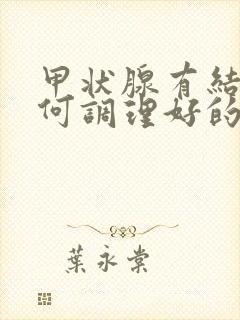 甲状腺有結
何調理好的
葉永棠